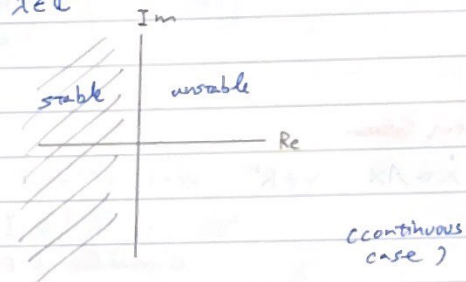 λ∈ℂ
Im
stable unstable
Re
(continuous
case)